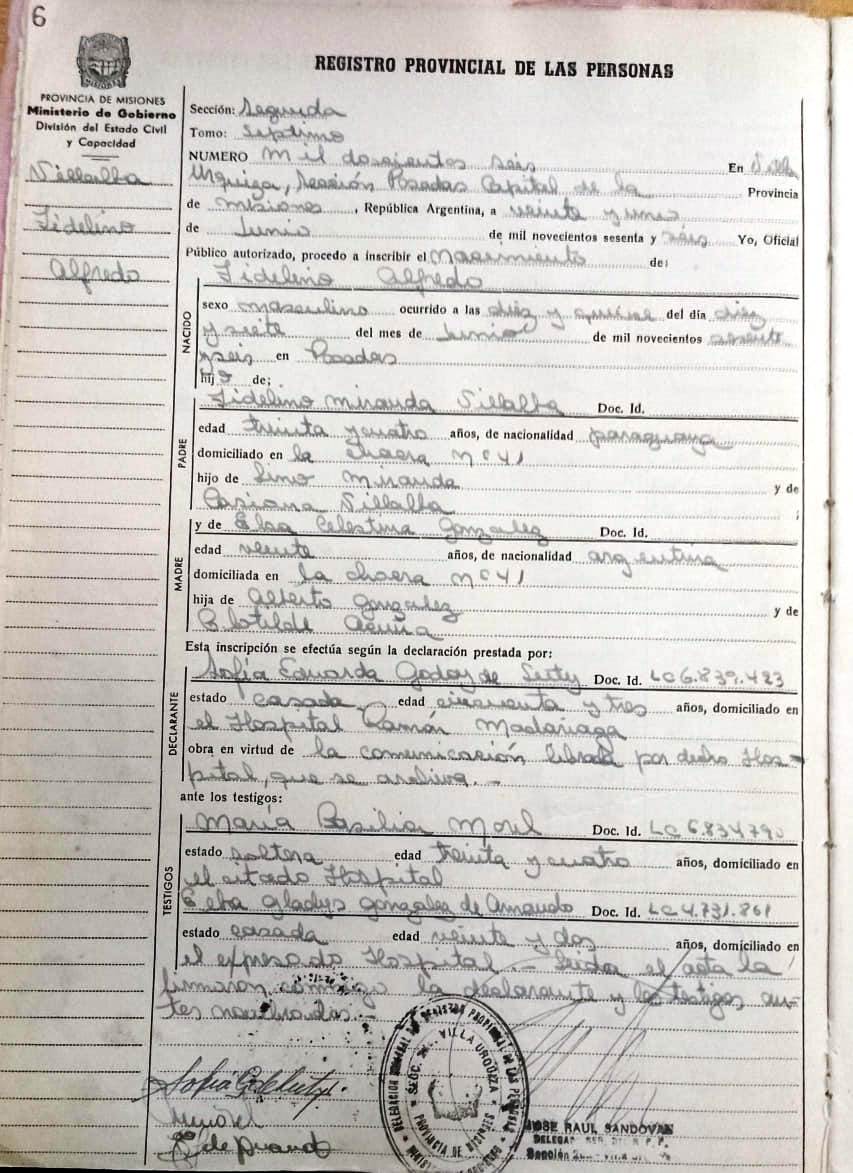 6
REGISTRO PROVINCIAL DE LAS PERSONAS
PROVINCIA DE MISIONES
Ministerio de Gobierno
División del Estado Civil
y Capacidad
Villalba
Fidelino
Alfredo
Sección: Segunda
Tomo: Septimo
NUMERO Mil doscientos seis En Villa
Urquiza, Sección Posadas Capital de la Provincia
de Misiones, República Argentina, a veinte y uno
de Junio de mil novecientos sesenta y seis Yo, Oficial
Público autorizado, procedo a inscribir el Nacimiento de:
Fidelino Alfredo
NACIDO
sexo masculino ocurrido a las diez y quince del día diez
y siete del mes de Junio de mil novecientos sesenta
y seis en Posadas
hijo de;
PADRE
Fidelino Miranda Villalba Doc. Id.
edad treinta y cuatro años, de nacionalidad paraguaya
domiciliado en la chacra nº 41
hijo de Lino Miranda y de
Villalba ;
MADRE
y de Elsa Celestina Gonzalez Doc. Id.
edad veinte años, de nacionalidad argentina
domiciliada en la chacra nº 41
hija de Alberto Gonzalez y de
Clotilde Acuña
Esta inscripción se efectúa según la declaración prestada por:
DECLARANTE
Sofía Eduarda Godoy de Doc. Id. LC 6.839.483
estado casada edad cincuenta y tres años, domiciliado en
el Hospital Ramón Madariaga
obra en virtud de la comunicación librada por dicho Hos-
pital, que se archiva.-
ante los testigos:
TESTIGOS
María Basilia Morel Doc. Id. LC 6.834.790
estado soltera edad treinta y cuatro años, domiciliado en
el citado Hospital
Elba Gladys Gonzalez de Doc. Id. LC 4.731.861
estado casada edad veinte y dos años, domiciliado en
el expresado Hospital.- Leida el acta la
firmaron conmigo la declarante y los testigos an-
tes nombrados.-
SECC. 2a. VILLA URQUIZA
PROVINCIA DE MISIONES
JOSE RAUL SANDOVAL